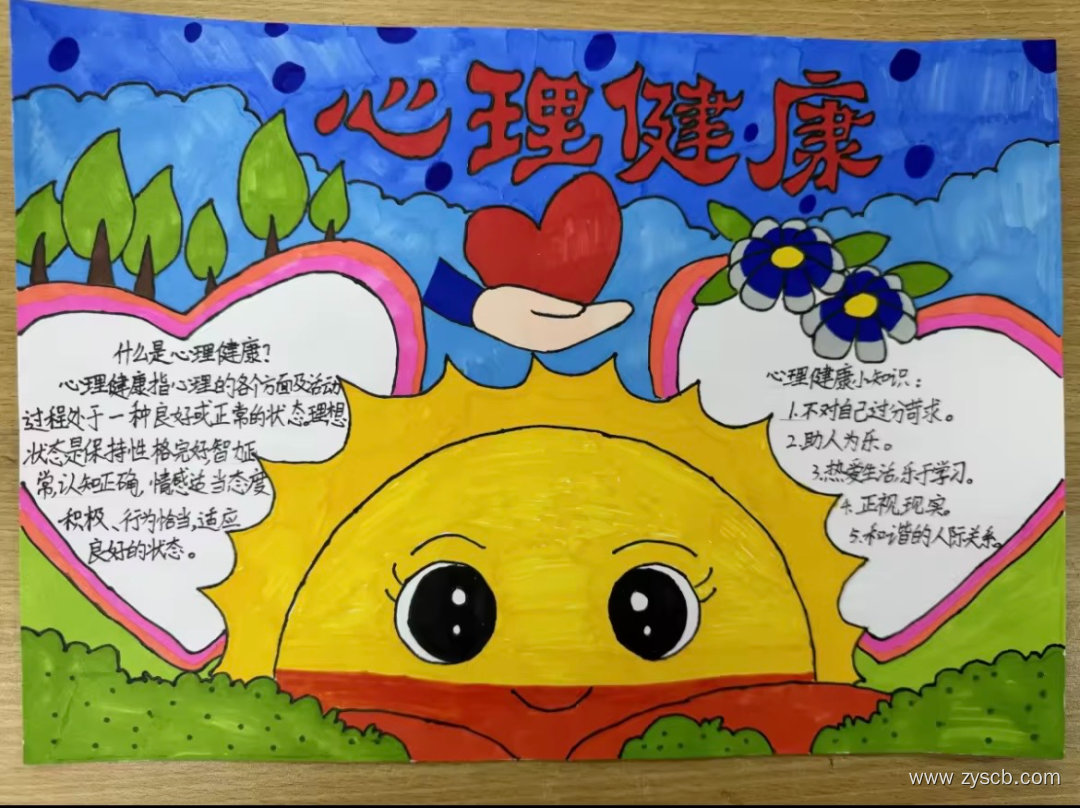 心理健康
什么是心理健康？
心理健康指心理的各个方面及活动
过程处于一种良好或正常的状态。理想
状态是保持性格完好,智力正
常,认知正确,情感适当,态度
积极、行为恰当,适应
良好的状态。
心理健康小知识：
1.不对自己过分苛求。
2.助人为乐。
3.热爱生活,乐于学习。
4.正视现实。
5.和谐的人际关系。
www.zyscb.com